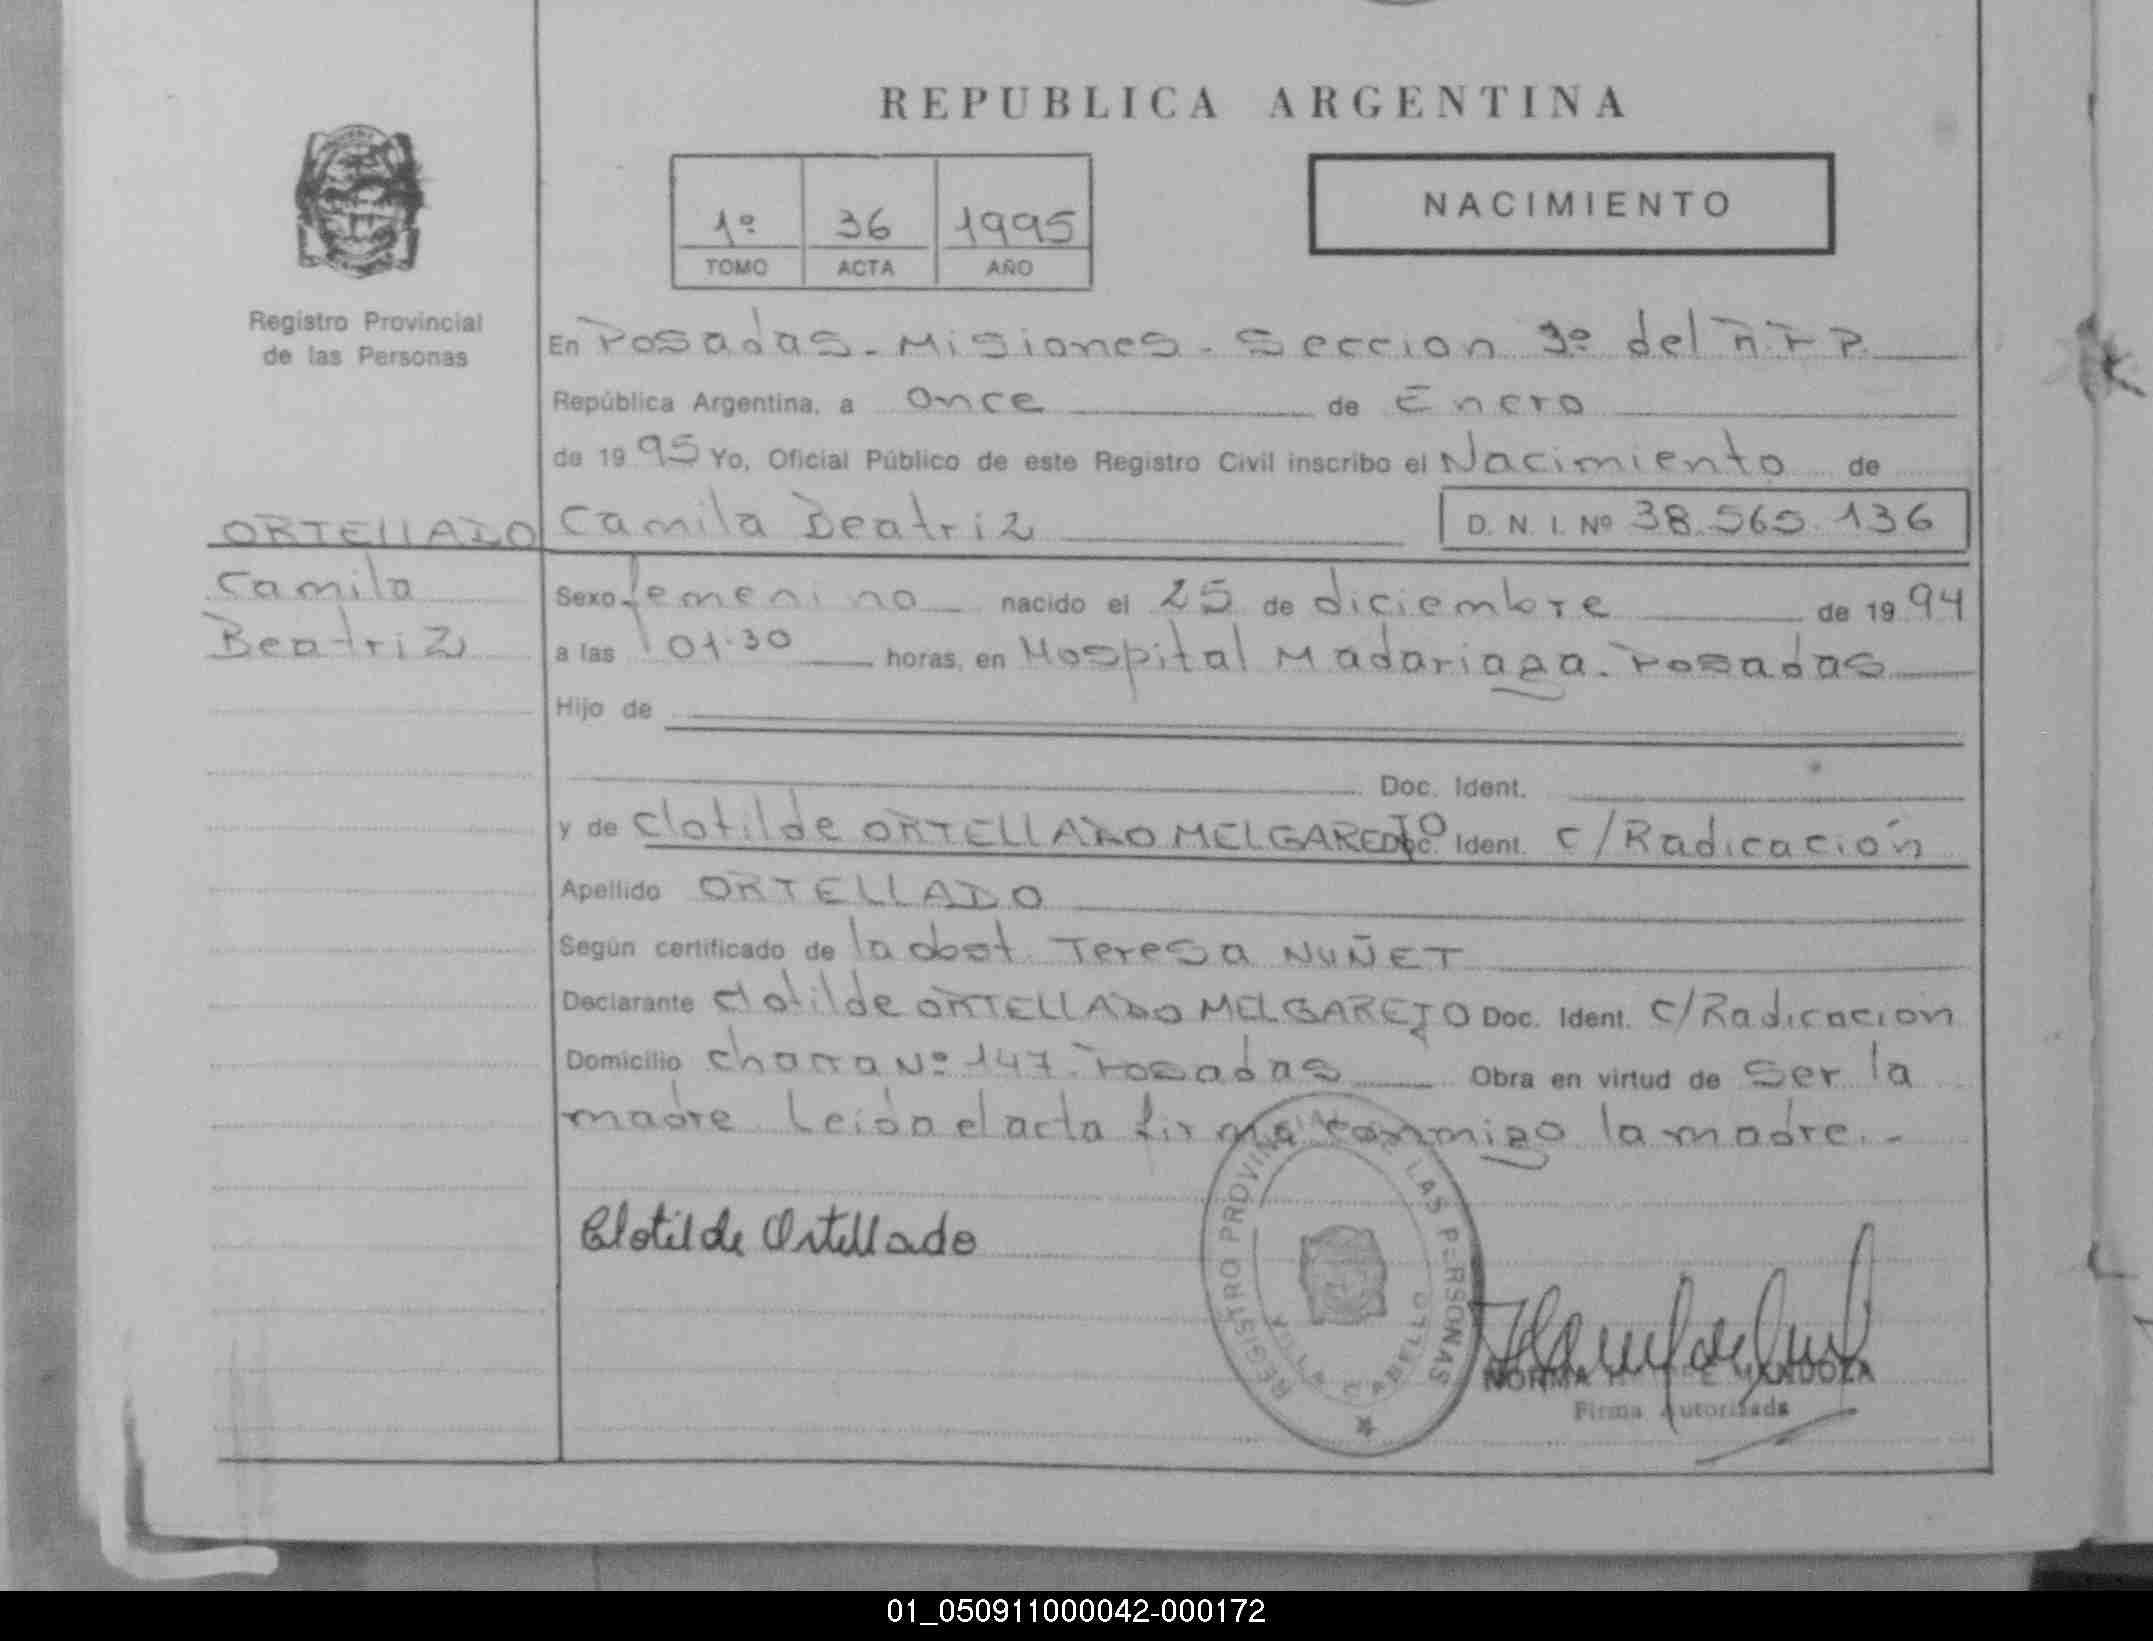 REPUBLICA ARGENTINA
1º 36 1995
TOMO ACTA AÑO
NACIMIENTO
Registro Provincial
de las Personas
En Posadas - Misiones - Seccion 3º del R.P.P.
República Argentina, a once de Enero
de 1995 Yo, Oficial Público de este Registro Civil inscribo el Nacimiento de
ORTELLADO Camila Beatriz D. N. I. Nº 38.565.136
Camila
Beatriz
Sexo femenino nacido el 25 de diciembre de 1994
a las 01.30 horas, en Hospital Madariaga. Posadas
Hijo de
Doc. Ident.
y de Clotilde ORTELLADO MELGAREJO Doc. Ident. c/Radicación
Apellido ORTELLADO
Según certificado de la obst. Teresa NUÑET
Declarante Clotilde ORTELLADO MELGAREJO Doc. Ident. c/Radicacion
Domicilio chacra Nº 147. Posadas Obra en virtud de ser la
madre. Leida el acta firma conmigo la madre.-
Clotilde Ortellado
REGISTRO PROVINCIAL DE LAS PERSONAS
VILLA CABELLO
NORMA MENDOZA
Firma Autorizada
01_050911000042-000172